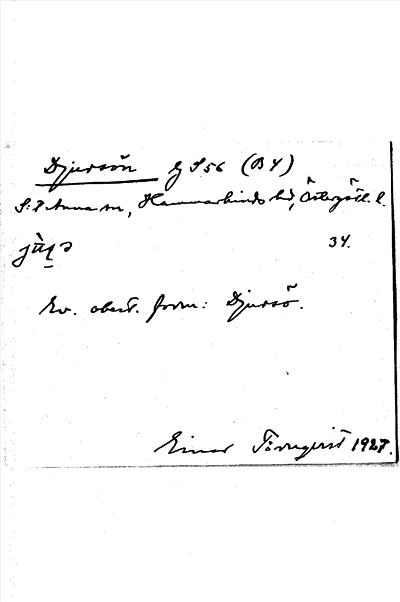 Djursön Eg S 56 (B4)
S:t Anna sn, Hammarkinds hd, Östergötl. l.
34.
Ev. obest. form: Djursö.
Einar Törnqvist 1927.